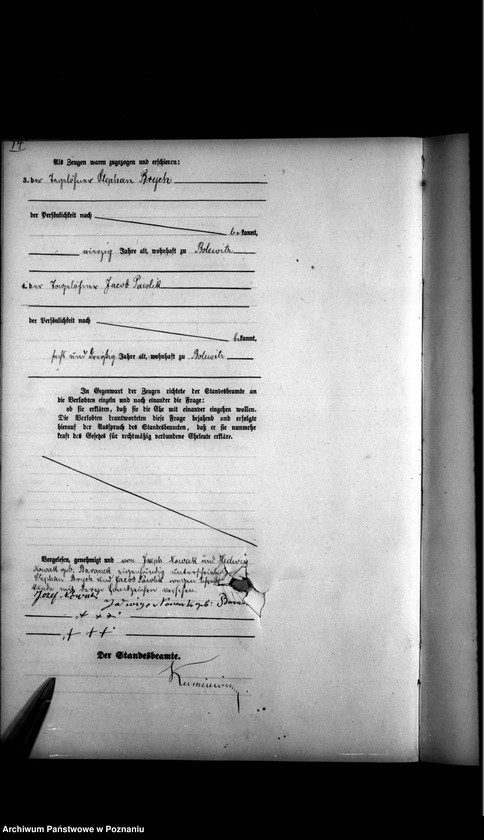 14
Als Zeugen waren zugezogen und erschienen:
3. der Tagelöhner Stephan Brych
der Persönlichkeit nach
bekannt,
vierzig Jahre alt, wohnhaft zu Bolewitz
4. der Tagelöhner Jacob Pawlik
der Persönlichkeit nach
bekannt,
sechs und dreißig Jahre alt, wohnhaft zu Bolewitz
In Gegenwart der Zeugen richtete der Standesbeamte an
die Verlobten einzeln und nach einander die Frage:
ob sie erklären, daß sie die Ehe mit einander eingehen wollen.
Die Verlobten beantworteten diese Frage bejahend und erfolgte
hierauf der Ausspruch des Standesbeamten, daß er sie nunmehr
kraft des Gesetzes für rechtmäßig verbundene Eheleute erkläre.
Vorgelesen, genehmigt und von Joseph Nowak und Hedwig
Nowak geb. Baranek eigenhändig unterschrieben
Stephan Brych und Jacob Pawlik wegen
mit ihren Handzeichen versehen.
Józef Nowak
Jadwiga Nowak geb:
+ + +
+ + +
Der Standesbeamte.
Archiwum Państwowe w Poznaniu